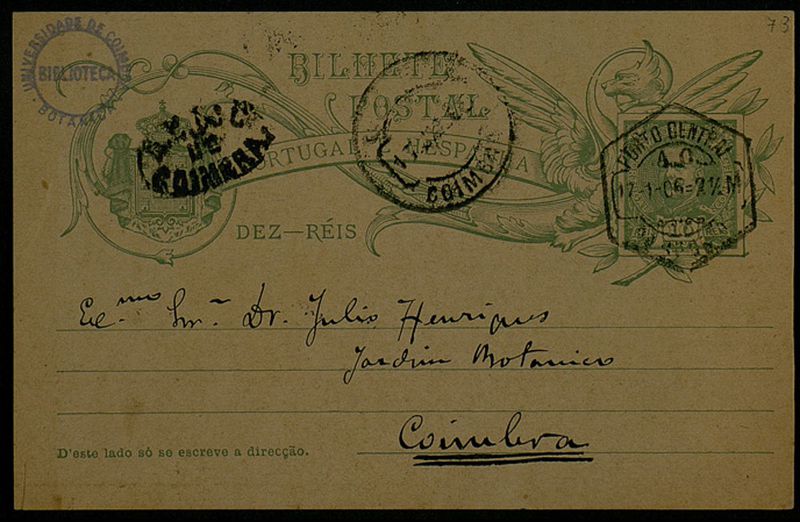 73
UNIVERSIDADE DE COIMBRA
BIBLIOTECA
BOTANICA
BILHETE
POSTAL
PORTUGAL HESPANHA
DE
COIMBRA
COIMBRA
PORTO CENTRAL
17-1-06
DEZ—RÉIS
Exe.mo Snr. Dr. Julio Henriques
Jardim Botanico
Coimbra
D'este lado só se escreve a direcção.